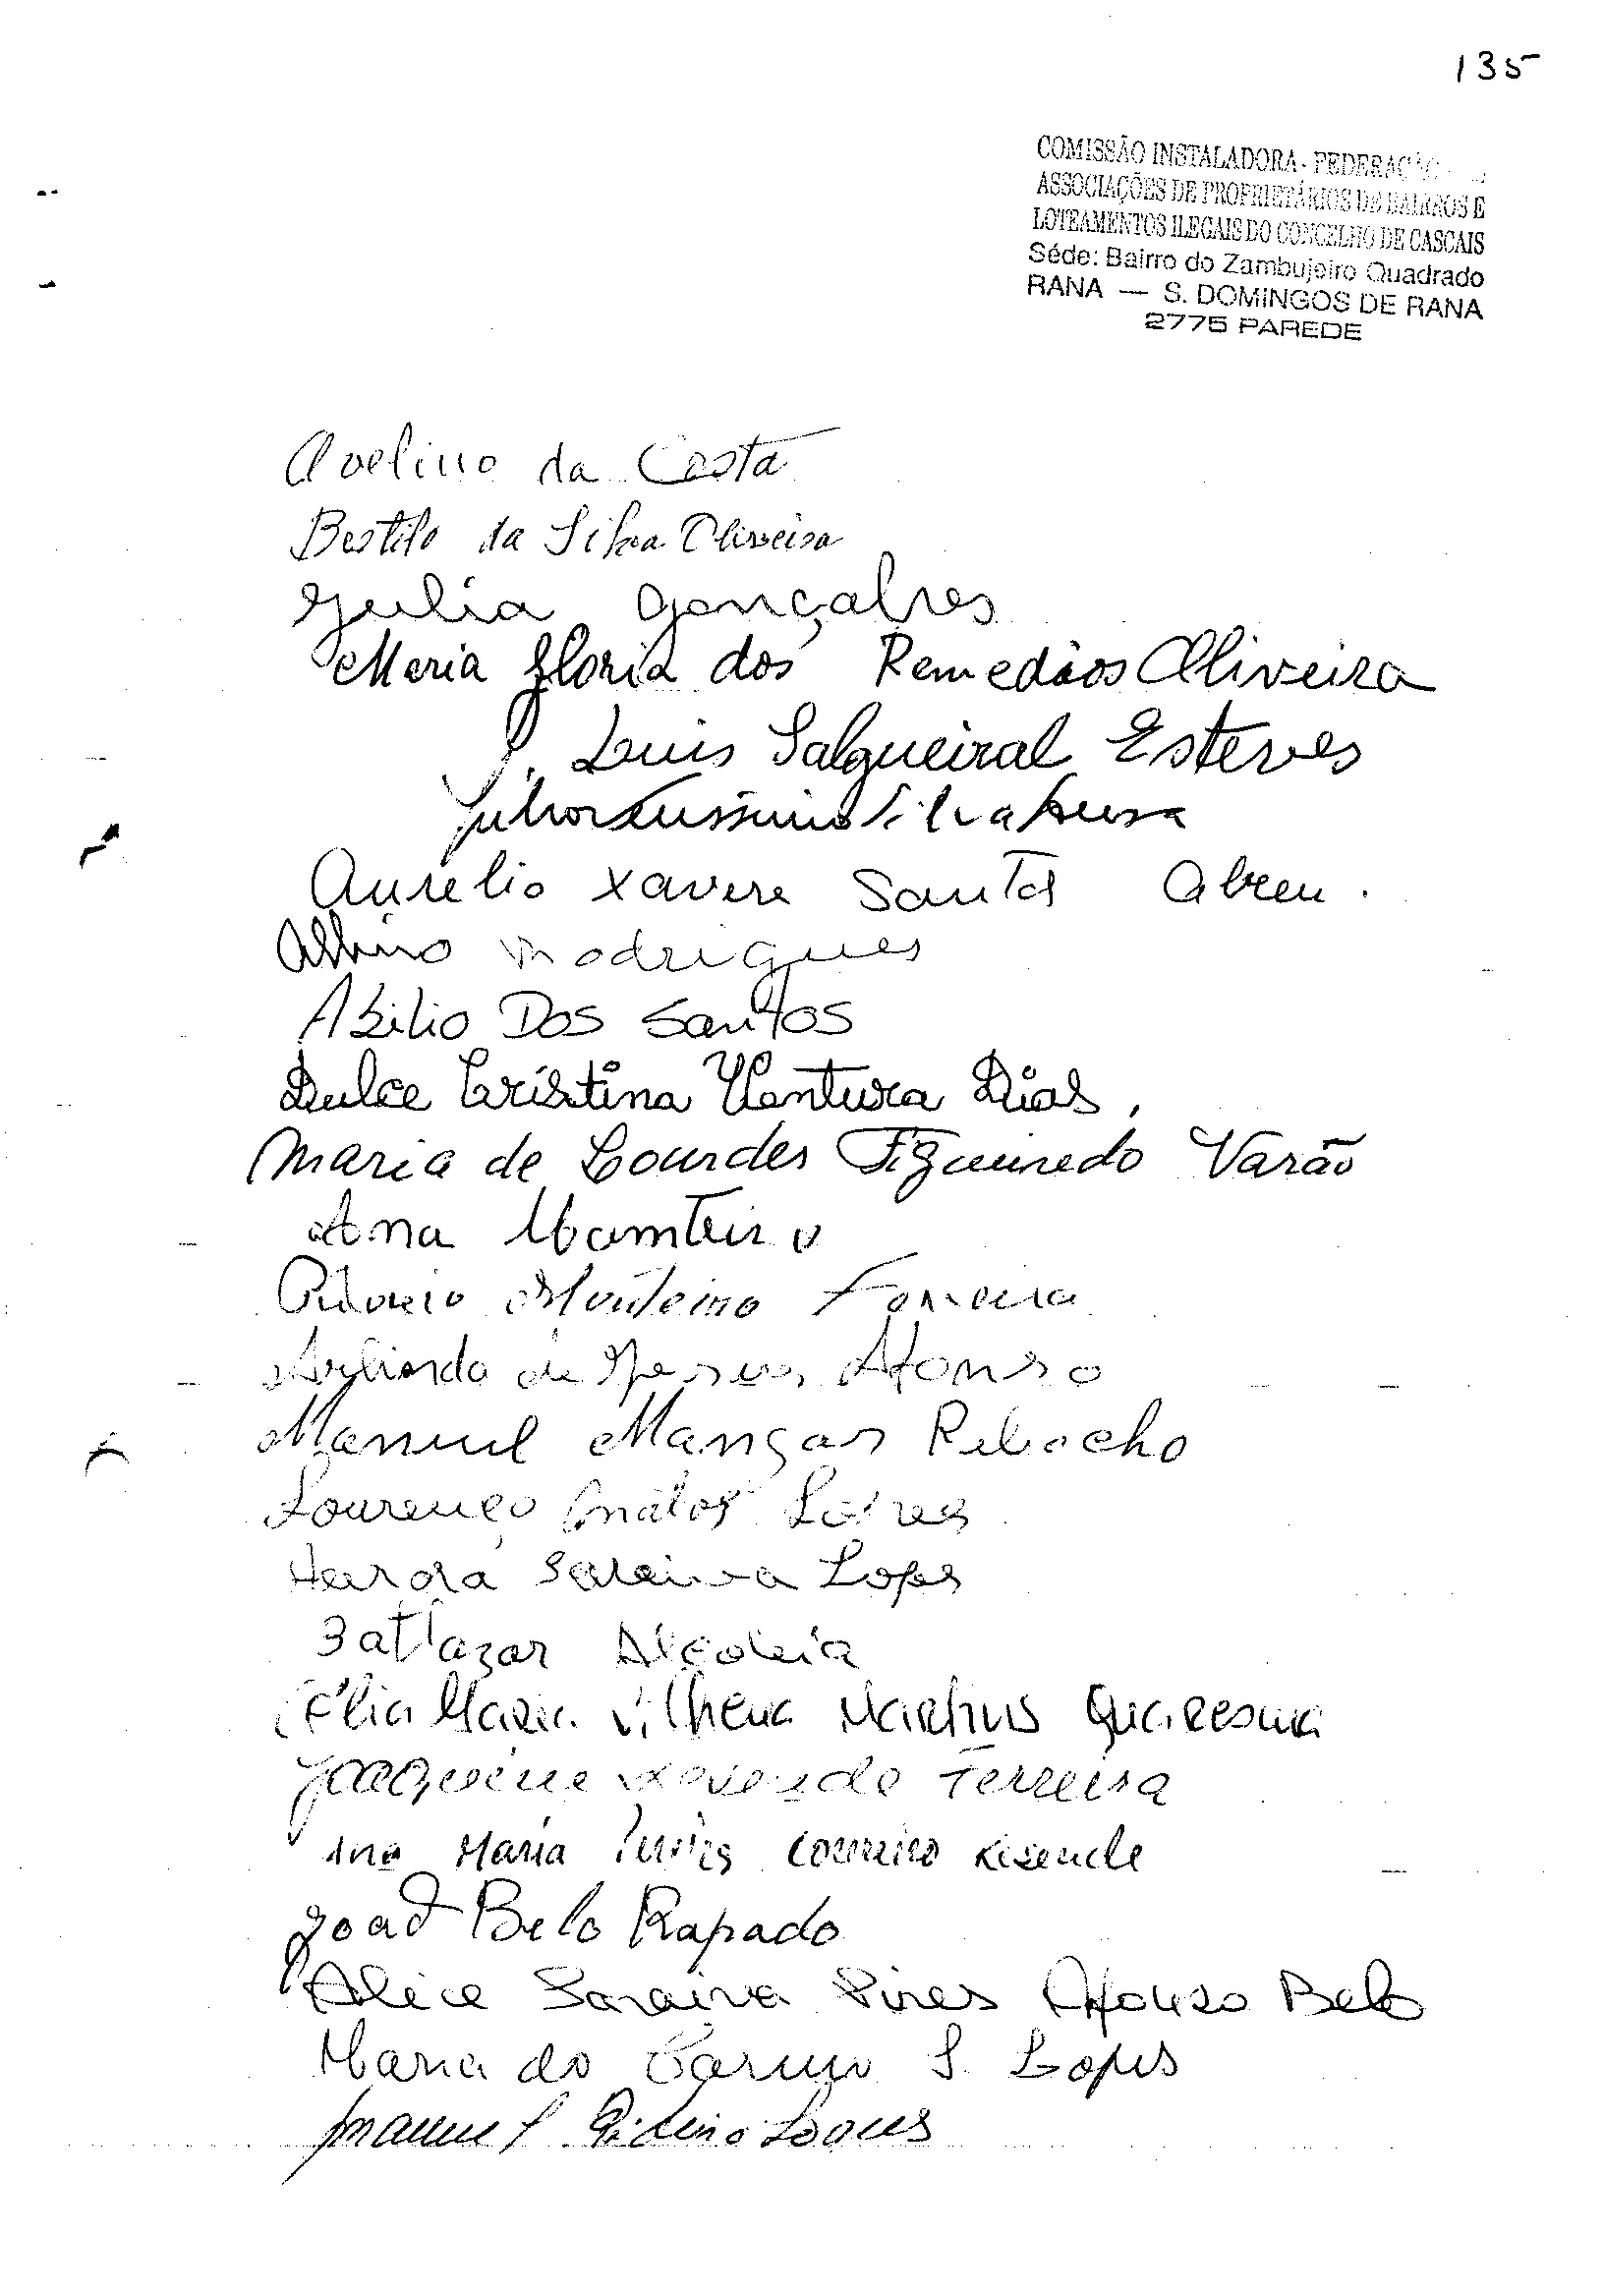 135
COMISSÃO INSTALADORA - FEDERAÇÃO
ASSOCIAÇÕES DE PROPRIETÁRIOS DE BAIRROS E
LOTEAMENTOS ILEGAIS DO CONCELHO DE CASCAIS
Séde: Bairro do Zambujeiro Quadrado
RANA — S. DOMINGOS DE RANA
2775 PAREDE
Avelino da Costa
da Silva Oliveira
Julia Gonçalves
Maria Gloria dos Remedios Oliveira
J. Luis Salgueiral Esteves
Aurelio Xavere Santos Abreu.
Albino Rodrigues
Abilio Dos Santos
Dulce Cristina Ventura Dias,
Maria de Lourdes Figueiredo Varão
Ana Monteiro
Monteiro Ferreira
de Jesus Afonso
Manuel Mangas Rebocho
Lourenço Matos
Saraiva Lopes
Baltazar
Célia Maria Vilhena Martins Quaresma
Ferreira
Ana Maria Loureiro Resende
João Belo Rapado
Alice Saraiva Pires Afonso Belo
Maria do Carmo S. Lopes
Manuel